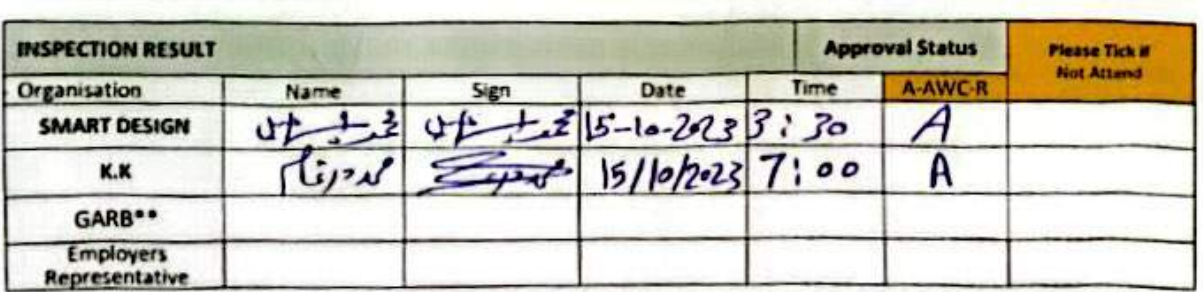 INSPECTION RESULT Approval Status Please Tick if
Not Attend
Organisation Name Sign Date Time A-AWC-R
SMART DESIGN 15-10-2023 3:30 A
K.K 15/10/2023 7:00 A
GARB**
Employers
Representative